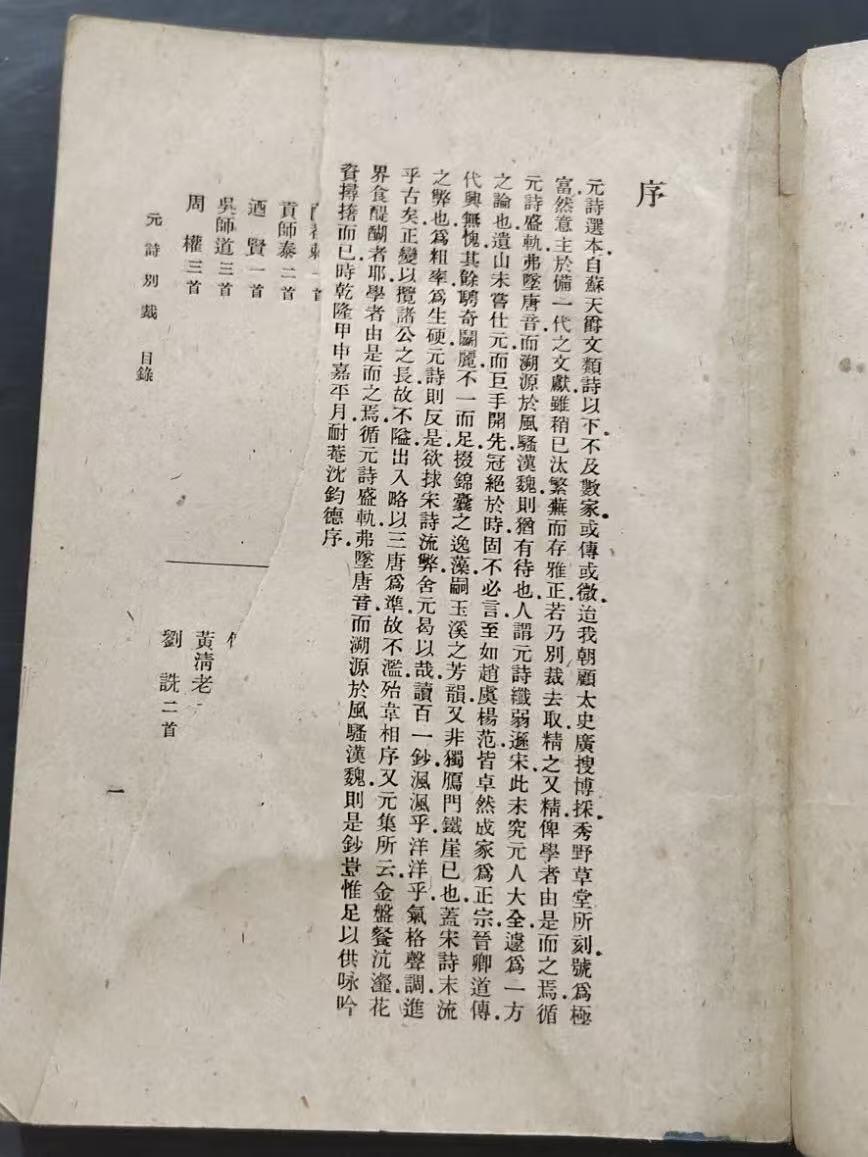 序
元詩選本自蘇天爵文類詩以下不及數家或傳或微迨我朝顧太史廣搜博採秀野草堂所刻號爲極
富然意主於備一代之文獻雖稍已汰繁蕪而存雅正若乃別裁去取精之又精俾學者由是而之焉循
元詩盛軌弗墜唐音而溯源於風騷漢魏則猶有待也人謂元詩纖弱遜宋此未究元人大全遽爲一方
之論也遺山未嘗仕元而巨手開先冠絕於時固不必言至如趙虞楊范皆卓然成家爲正宗晉卿道傳
代興無愧其餘騁奇鬭麗不一而足掇錦囊之逸藻嗣玉溪之芳韻又非獨鴈門鐵崖已也蓋宋詩末流
之弊也爲粗率爲生硬元詩則反是欲捄宋詩流弊舍元曷以哉讀百一鈔渢渢乎洋洋乎氣格聲調進
乎古矣正變以攬諸公之長故不隘出入略以三唐爲準故不濫殆韋相序又元集所云金盤餐沆瀣花
界食醍醐者耶學者由是而之焉循元詩盛軌弗墜唐音而溯源於風騷漢魏則是鈔豈惟足以供咏吟
資撏撦而已時乾隆甲申嘉平月耐菴沈鈞德序
貢師泰二首
迺賢一首
吳師道三首
周權三首
黃清老
劉詵二首
元詩別裁 目錄
一